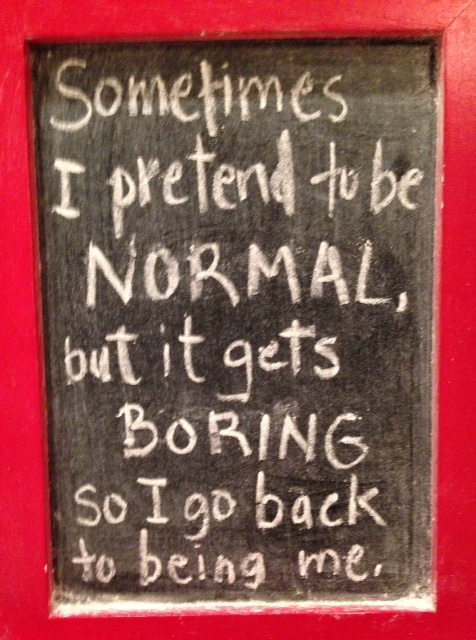 Sometimes
I pretend to be
NORMAL,
but it gets
BORING
so I go back
to being me.